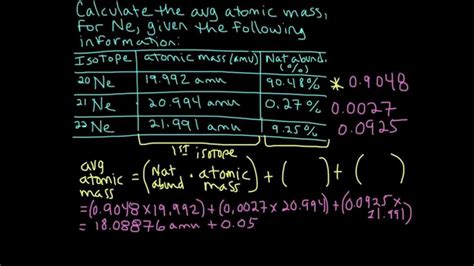 Calculate the avg atomic mass,
for Ne, given the following
information:
Isotope atomic mass (amu) Nat abund. (%)
20Ne 19.992 amu 90.48% * 0.9048
21Ne 20.994 amu 0.27% 0.0027
22Ne 21.991 amu 9.25% 0.0925
1ST isotope
avg atomic mass = (Nat abund · atomic mass) + ( ) + ( )
=(0.9048×19.992)+(0.0027×20.994)+(0.0925×21.991)
=18.08876 amu + 0.05